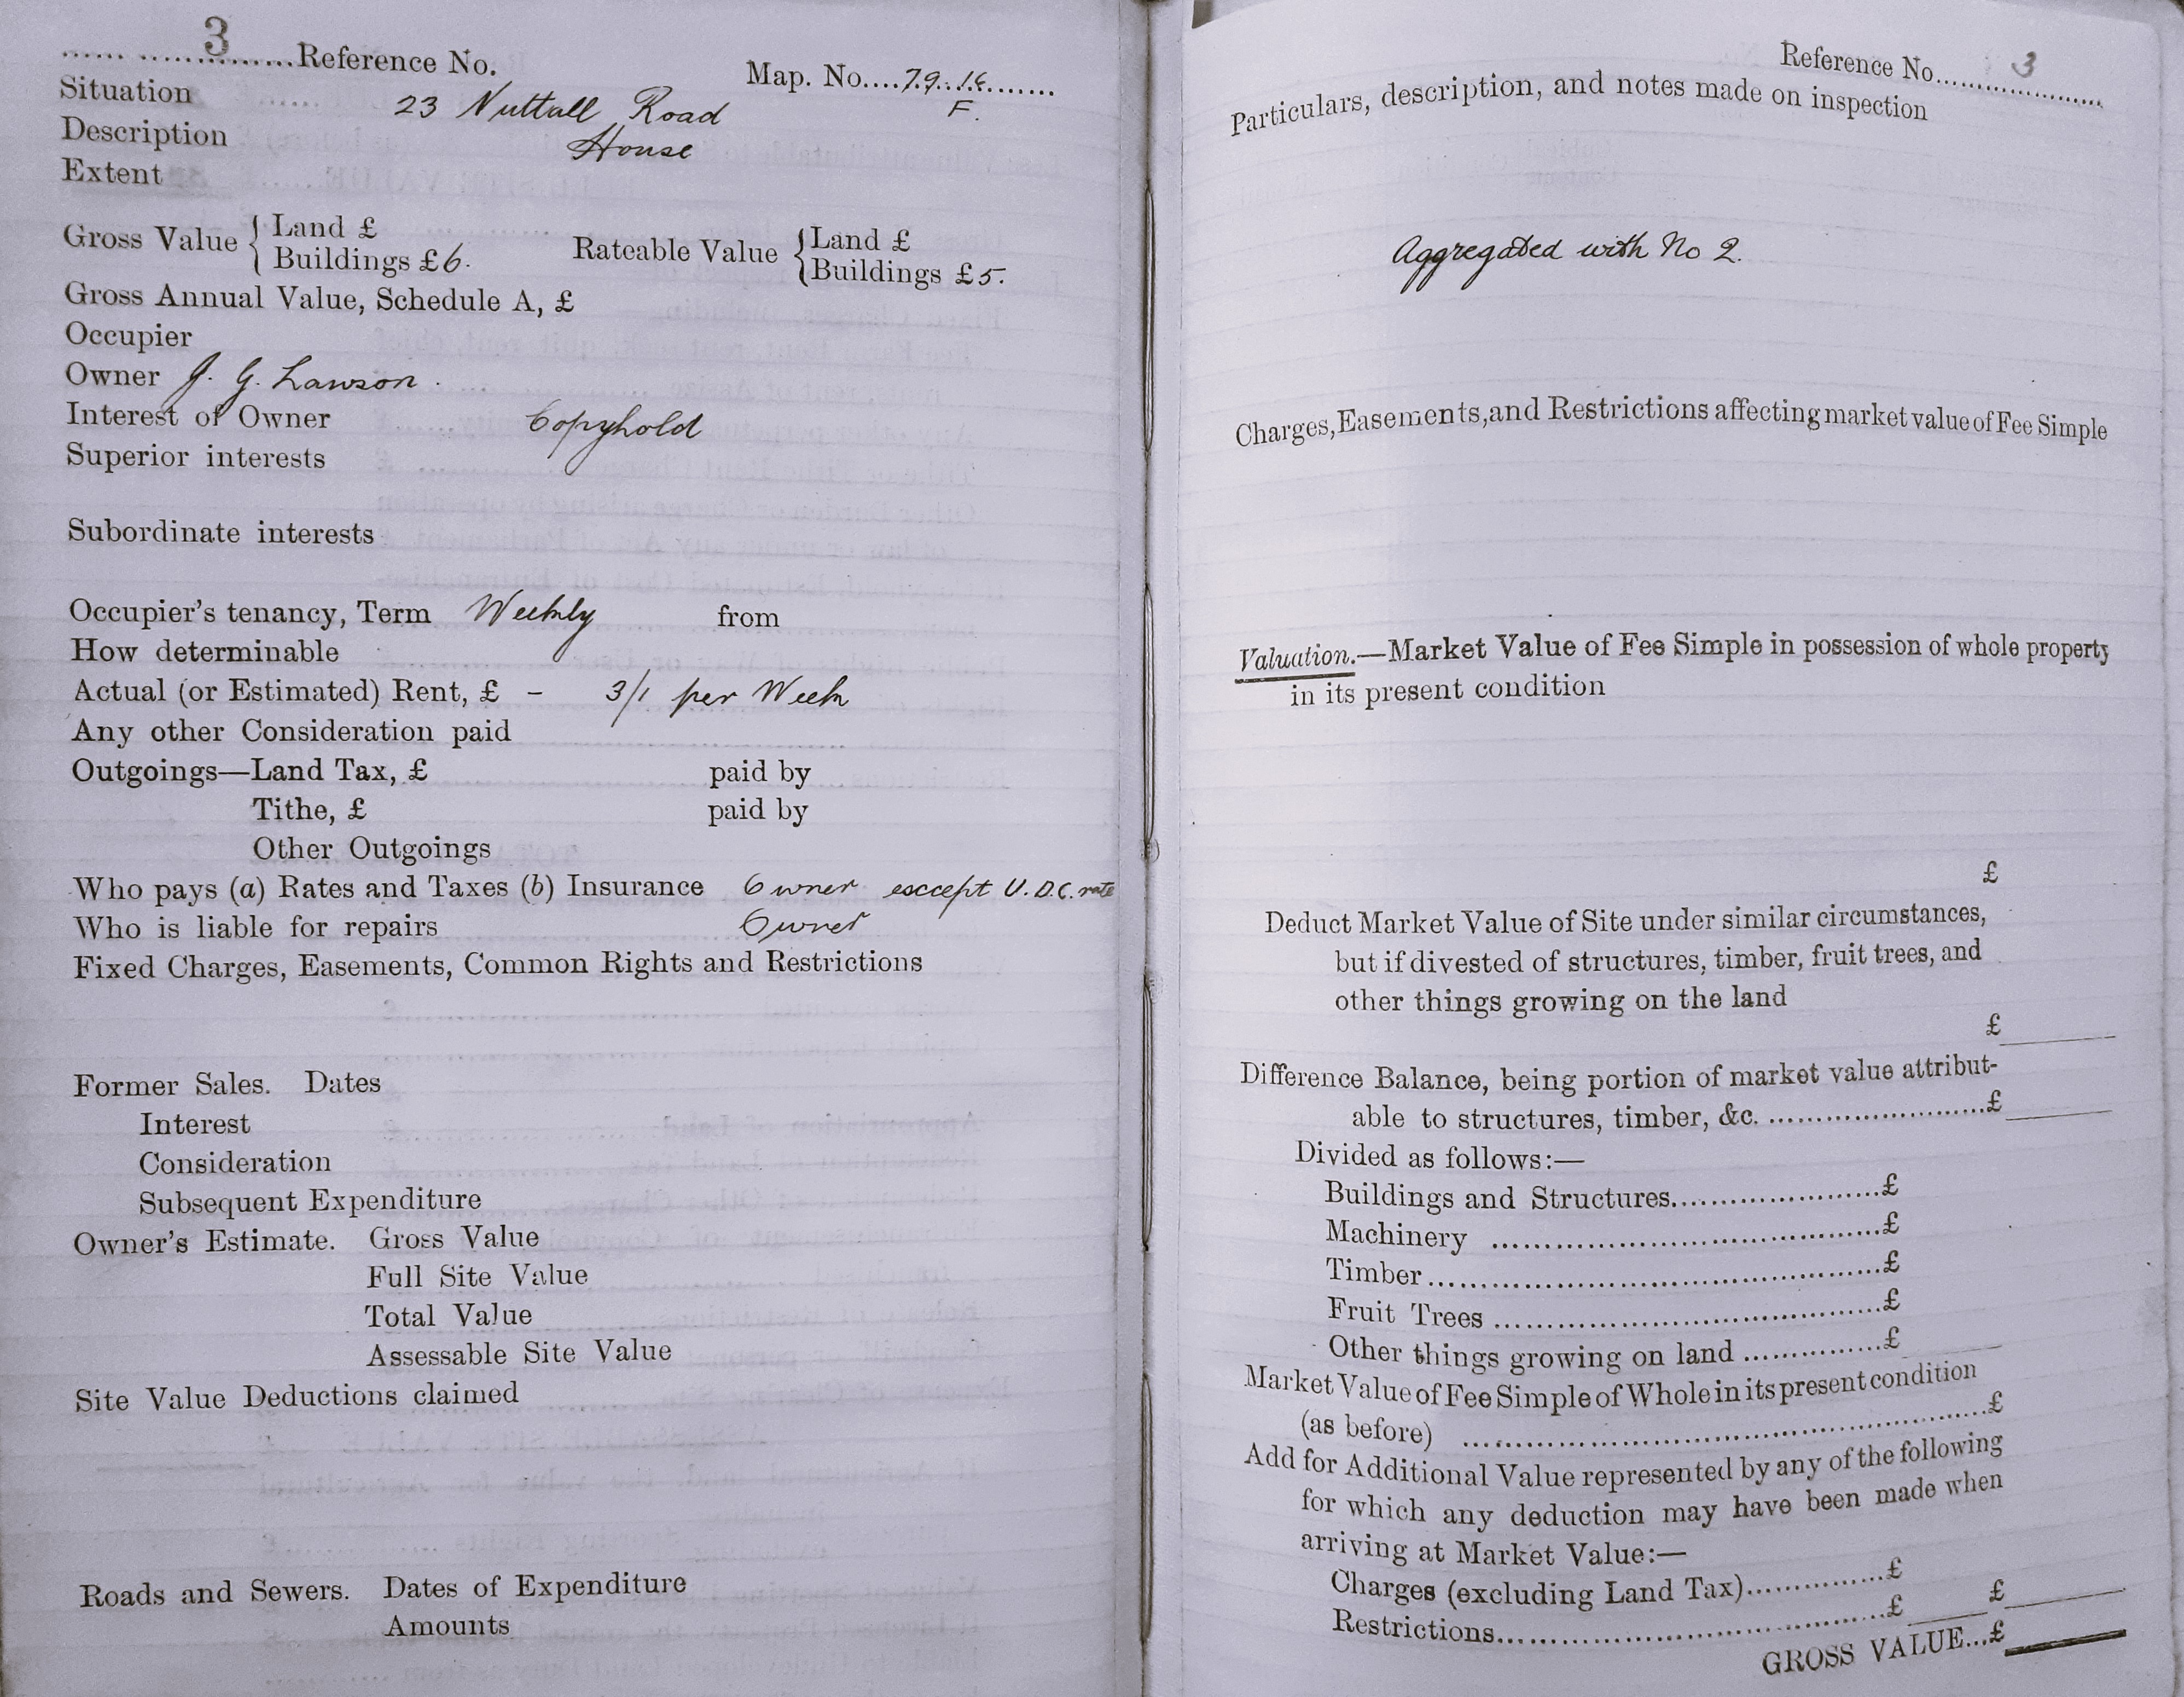 3
...... ................Reference No.
Map. No....79.:16.......
F.
Situation 23 Nuttall Road
Description House
Extent
Gross Value { Land £
Buildings £6.
Rateable Value { Land £
Buildings £5.
Gross Annual Value, Schedule A, £
Occupier
Owner J. G. Lawson.
Interest of Owner Copyhold
Superior interests
Subordinate interests
Occupier's tenancy, Term Weekly from
How determinable
Actual (or Estimated) Rent, £ – 3/1 per Week
Any other Consideration paid
Outgoings—Land Tax, £ paid by
Tithe, £ paid by
Other Outgoings
Who pays (a) Rates and Taxes (b) Insurance Owner except U.D.C. rate
Who is liable for repairs Owner
Fixed Charges, Easements, Common Rights and Restrictions
Former Sales. Dates
Interest
Consideration
Subsequent Expenditure
Owner's Estimate. Gross Value
Full Site Value
Total Value
Assessable Site Value
Site Value Deductions claimed
Roads and Sewers. Dates of Expenditure
Amounts
Reference No. 3
Particulars, description, and notes made on inspection
Aggregated with No 2.
Charges, Easements, and Restrictions affecting market value of Fee Simple
Valuation.—Market Value of Fee Simple in possession of whole property
in its present condition
£
Deduct Market Value of Site under similar circumstances,
but if divested of structures, timber, fruit trees, and
other things growing on the land
£
Difference Balance, being portion of market value attribut-
able to structures, timber, &c. ........................£
Divided as follows:—
Buildings and Structures........................£
Machinery ........................................£
Timber..............................................£
Fruit Trees ........................................£
Other things growing on land ...............£
Market Value of Fee Simple of Whole in its present condition
(as before) ......................................................£
Add for Additional Value represented by any of the following
for which any deduction may have been made when
arriving at Market Value:—
Charges (excluding Land Tax)...............£
Restrictions........................................£ £
GROSS VALUE...£